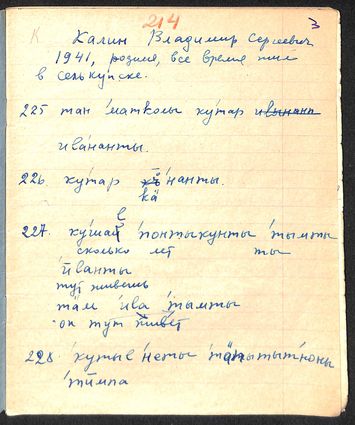 К 214 3
Калин Владимир Сергеевич
1941, родился, все время жил
в селькупске.
225 тан 'матколы ку́тар
ива́нанты.
226. ку́тар 'нанты.
кӓ
227. ку́шай 'понтыкунты 'тымты
сколько лет ты
'иванты
тут живешь
там 'ива 'тымты
он тут живет
228. 'кутые 'неты
'тӣмпа